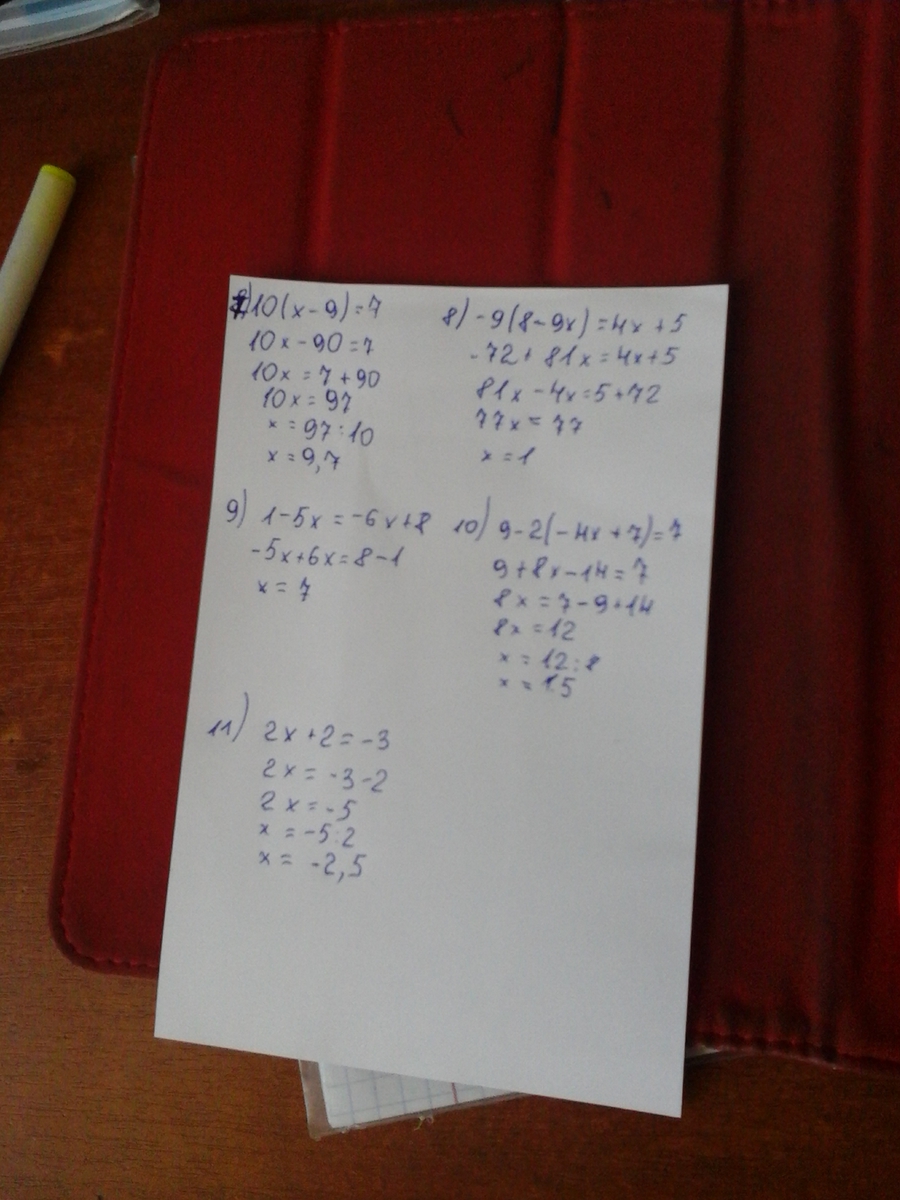 7) 10(x-9)=7
10x-90=7
10x=7+90
10x=97
x=97:10
x=9,7
8) -9(8-9x)=4x+5
-72+81x=4x+5
81x-4x=5+72
77x=77
x=1
9) 1-5x=-6x+8
-5x+6x=8-1
x=7
10) 9-2(-4x+7)=7
9+8x-14=7
8x=7-9+14
8x=12
x=12:8
x=1.5
11) 2x+2=-3
2x=-3-2
2x=-5
x=-5:2
x=-2,5